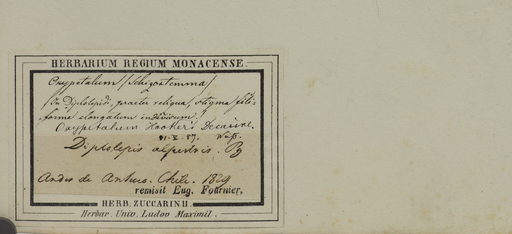 HERBARIUM REGIUM MONACENSE.
Oxypetalum (Schizostemma)
In Diplolepidi, praeter reliqua, stigma fili-
forme elongatum indivisum.
Oxypetalum Hookeri Decaisne.
Diplolepis alpestris.
Andes de Chile. 1829
remisit Eug. Fournier,
HERB. ZUCCARINII.
Herbar. Univ. Ludov Maximil.